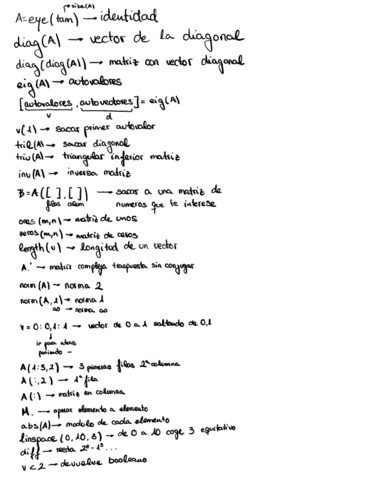 size(A)
A=eye(tam) → identidad
diag(A) → vector de la diagonal
diag(diag(A)) → matriz con vector diagonal
eig(A) → autovalores
[autovalores, autovectores] = eig(A)
v d
v(1) → sacar primer autovalor
tril(A) → sacar diagonal
triu(A) → triangular inferior matriz
inv(A) → inversa matriz
B=A([ ],[ ]) → sacar a una matriz de
filas colum numeros que te interese
ones(m,n) → matriz de unos
zeros(m,n) → matriz de ceros
length(v) → longitud de un vector
A.' → matriz compleja traspuesta sin conjugar
norm(A) → norma 2
norm(A,1) → norma 1
∞ → norma ∞
v=0:0,1:1 → vector de 0 a 1 saltando de 0,1
ir para atras
poniendo -
A(1:3,2) → 3 primeras filas 2ª columna
A(:,2) → 1ª fila
A(:) → matriz en columna
M. → operar elemento a elemento
abs(A) → modulo de cada elemento
linspace(0,10,3) → de 0 a 10 coge 3
diff → resta 2º-1º...
v<2 → devuelve booleano